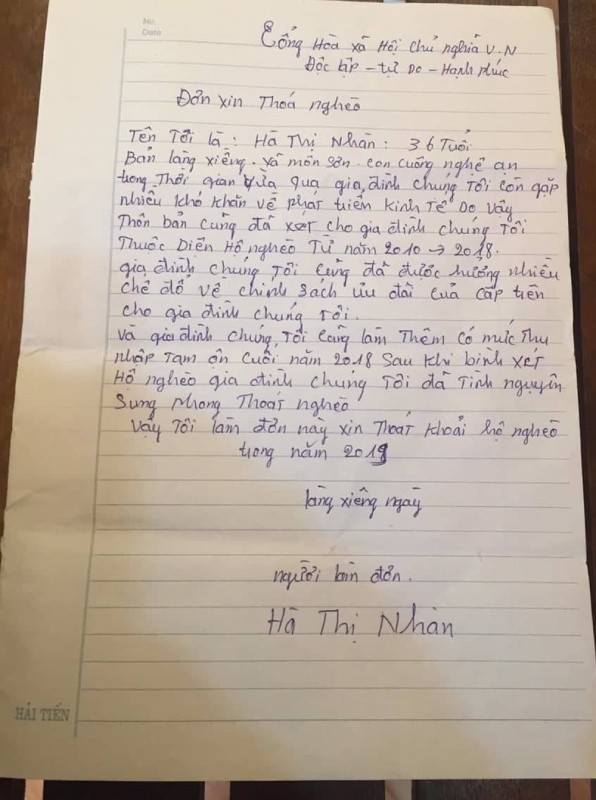 No.
Date
Cổng Hoà xã Hội Chủ nghĩa V.N
Độc lập - tự Do - Hạnh phúc
Đơn xin Thoá nghèo
Tên Tôi là : Hà Thị Nhàn : 36 Tuổi
Bản làng xiềng. xã môn sơn. con cuông nghệ an
trong Thời gian vừa qua gia đình chúng Tôi còn gặp
nhiều khó khăn về phát triển kinh Tế Do Vậy
Thôn bản cũng đã xét cho gia đình chúng Tôi
Thuộc Diện Hộ nghèo Từ năm 2010 → 2018.
gia đình chúng Tôi cũng đã được hưởng nhiều
chế đô về chính sách ưu đãi của cấp trên
cho gia đình chúng Tôi.
Và gia đình chúng Tôi cũng làm Thêm có mức Thu
nhập Tạm ổn cuối năm 2018 Sau khi bình xét
Hộ nghèo gia đình chúng Tôi đã Tình nguyện
Sung phong Thoát nghèo
Vậy Tôi làm đơn này xin Thoát khoải hộ nghèo
trong năm 2019
làng xiềng ngày
người làm đơn.
Hà Thị Nhàn
HẢI TIẾN